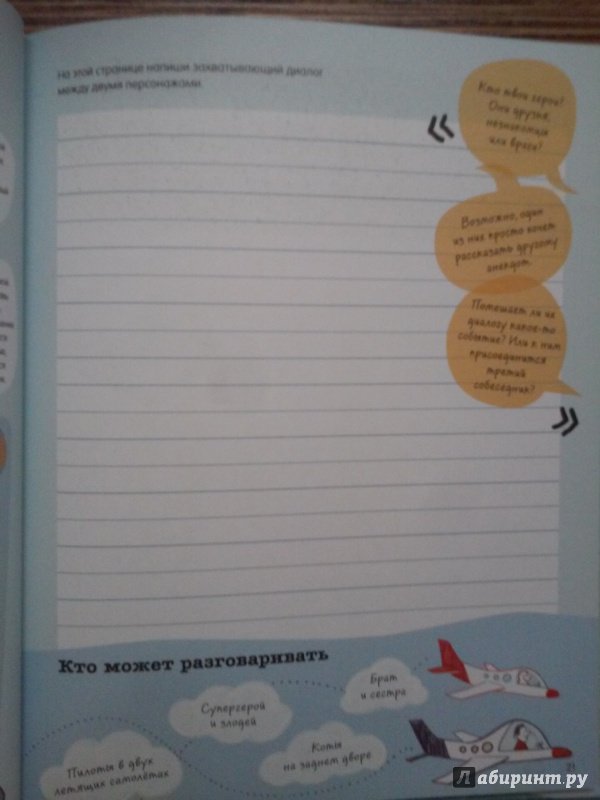 На этой странице напиши захватывающий диалог
между двумя персонажами.
«
Кто твои герои?
Они друзья,
незнакомцы
или враги?
Возможно, один
из них просто хочет
рассказать другому
анекдот.
Помешает ли их
диалогу какое-то
событие? Или к ним
присоединится
третий
собеседник?
»
Кто может разговаривать
Брат
и сестра
Супергерой
и злодей
Коты
на заднем дворе
Пилоты в двух
летящих самолётах
Лабиринт.ру